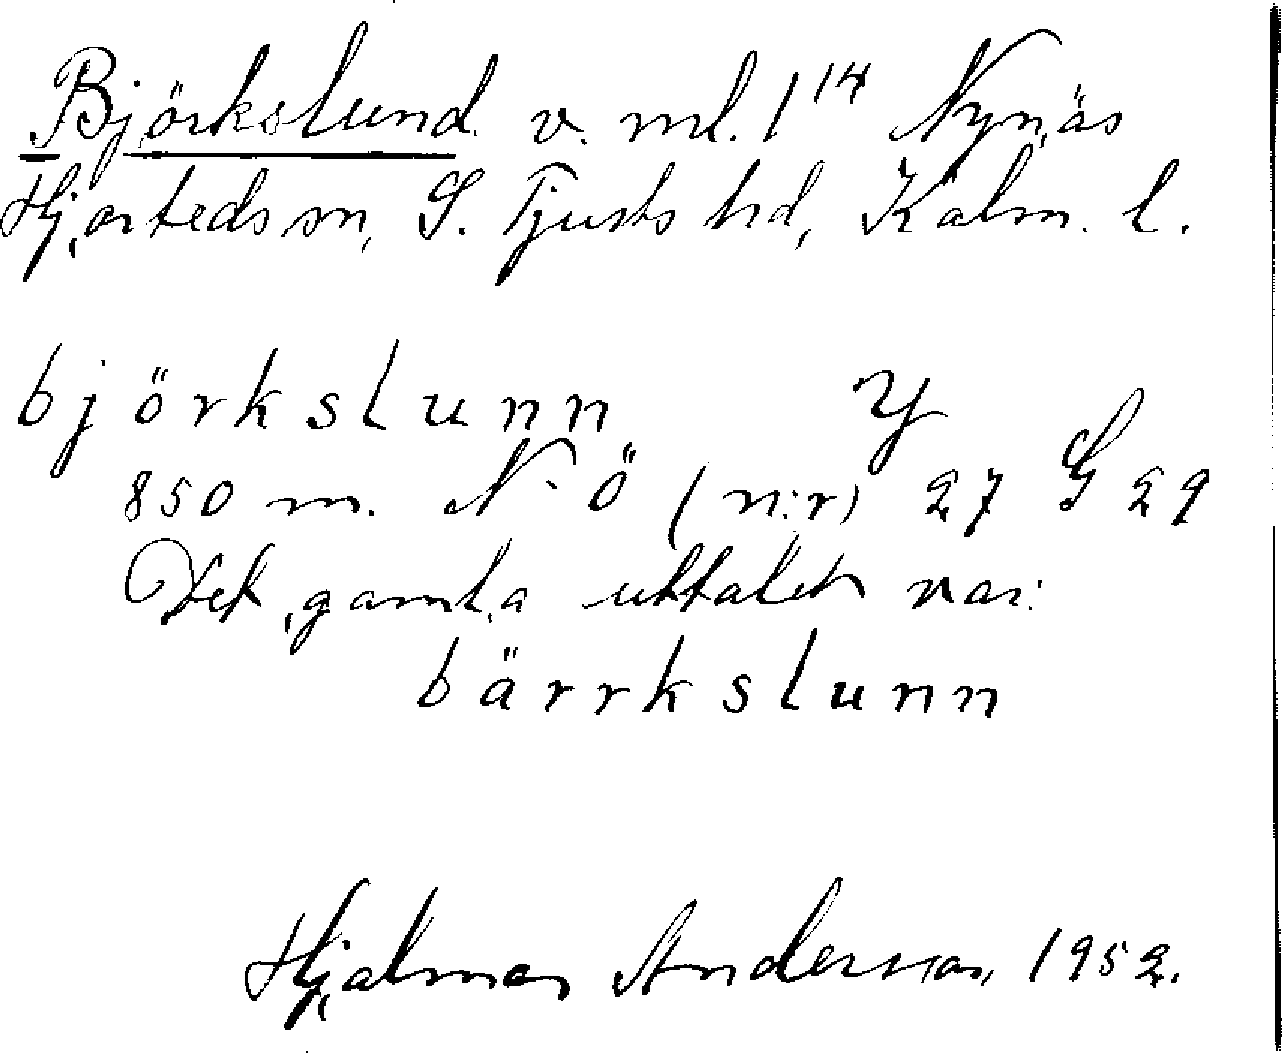 Björkslund v. ml. 1 14 Nynäs
Hjorteds sn, S. Tjusts hd, Kalm. l.
björkslunn Y
850 m. N. Ö (n:r) 27 G 29
Det gamla uttalet var:
bärrkslunn
Hjalmar Andersson, 1952.